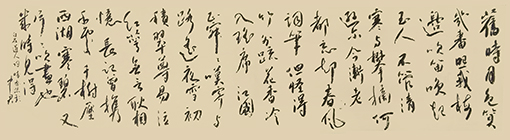 舊時月色算
幾番照我梅
邊吹笛喚起
玉人不管清
寒與攀摘何
遜而今漸老
都忘却春風
詞筆但怪得
竹外疏花香冷
入瑤席江國
正寂寂嘆寄與
路遙夜雪初
積翠尊易泣
紅萼無言耿相
憶長記曾攜
手處千樹壓
西湖寒碧又
片片吹盡也
幾時見得